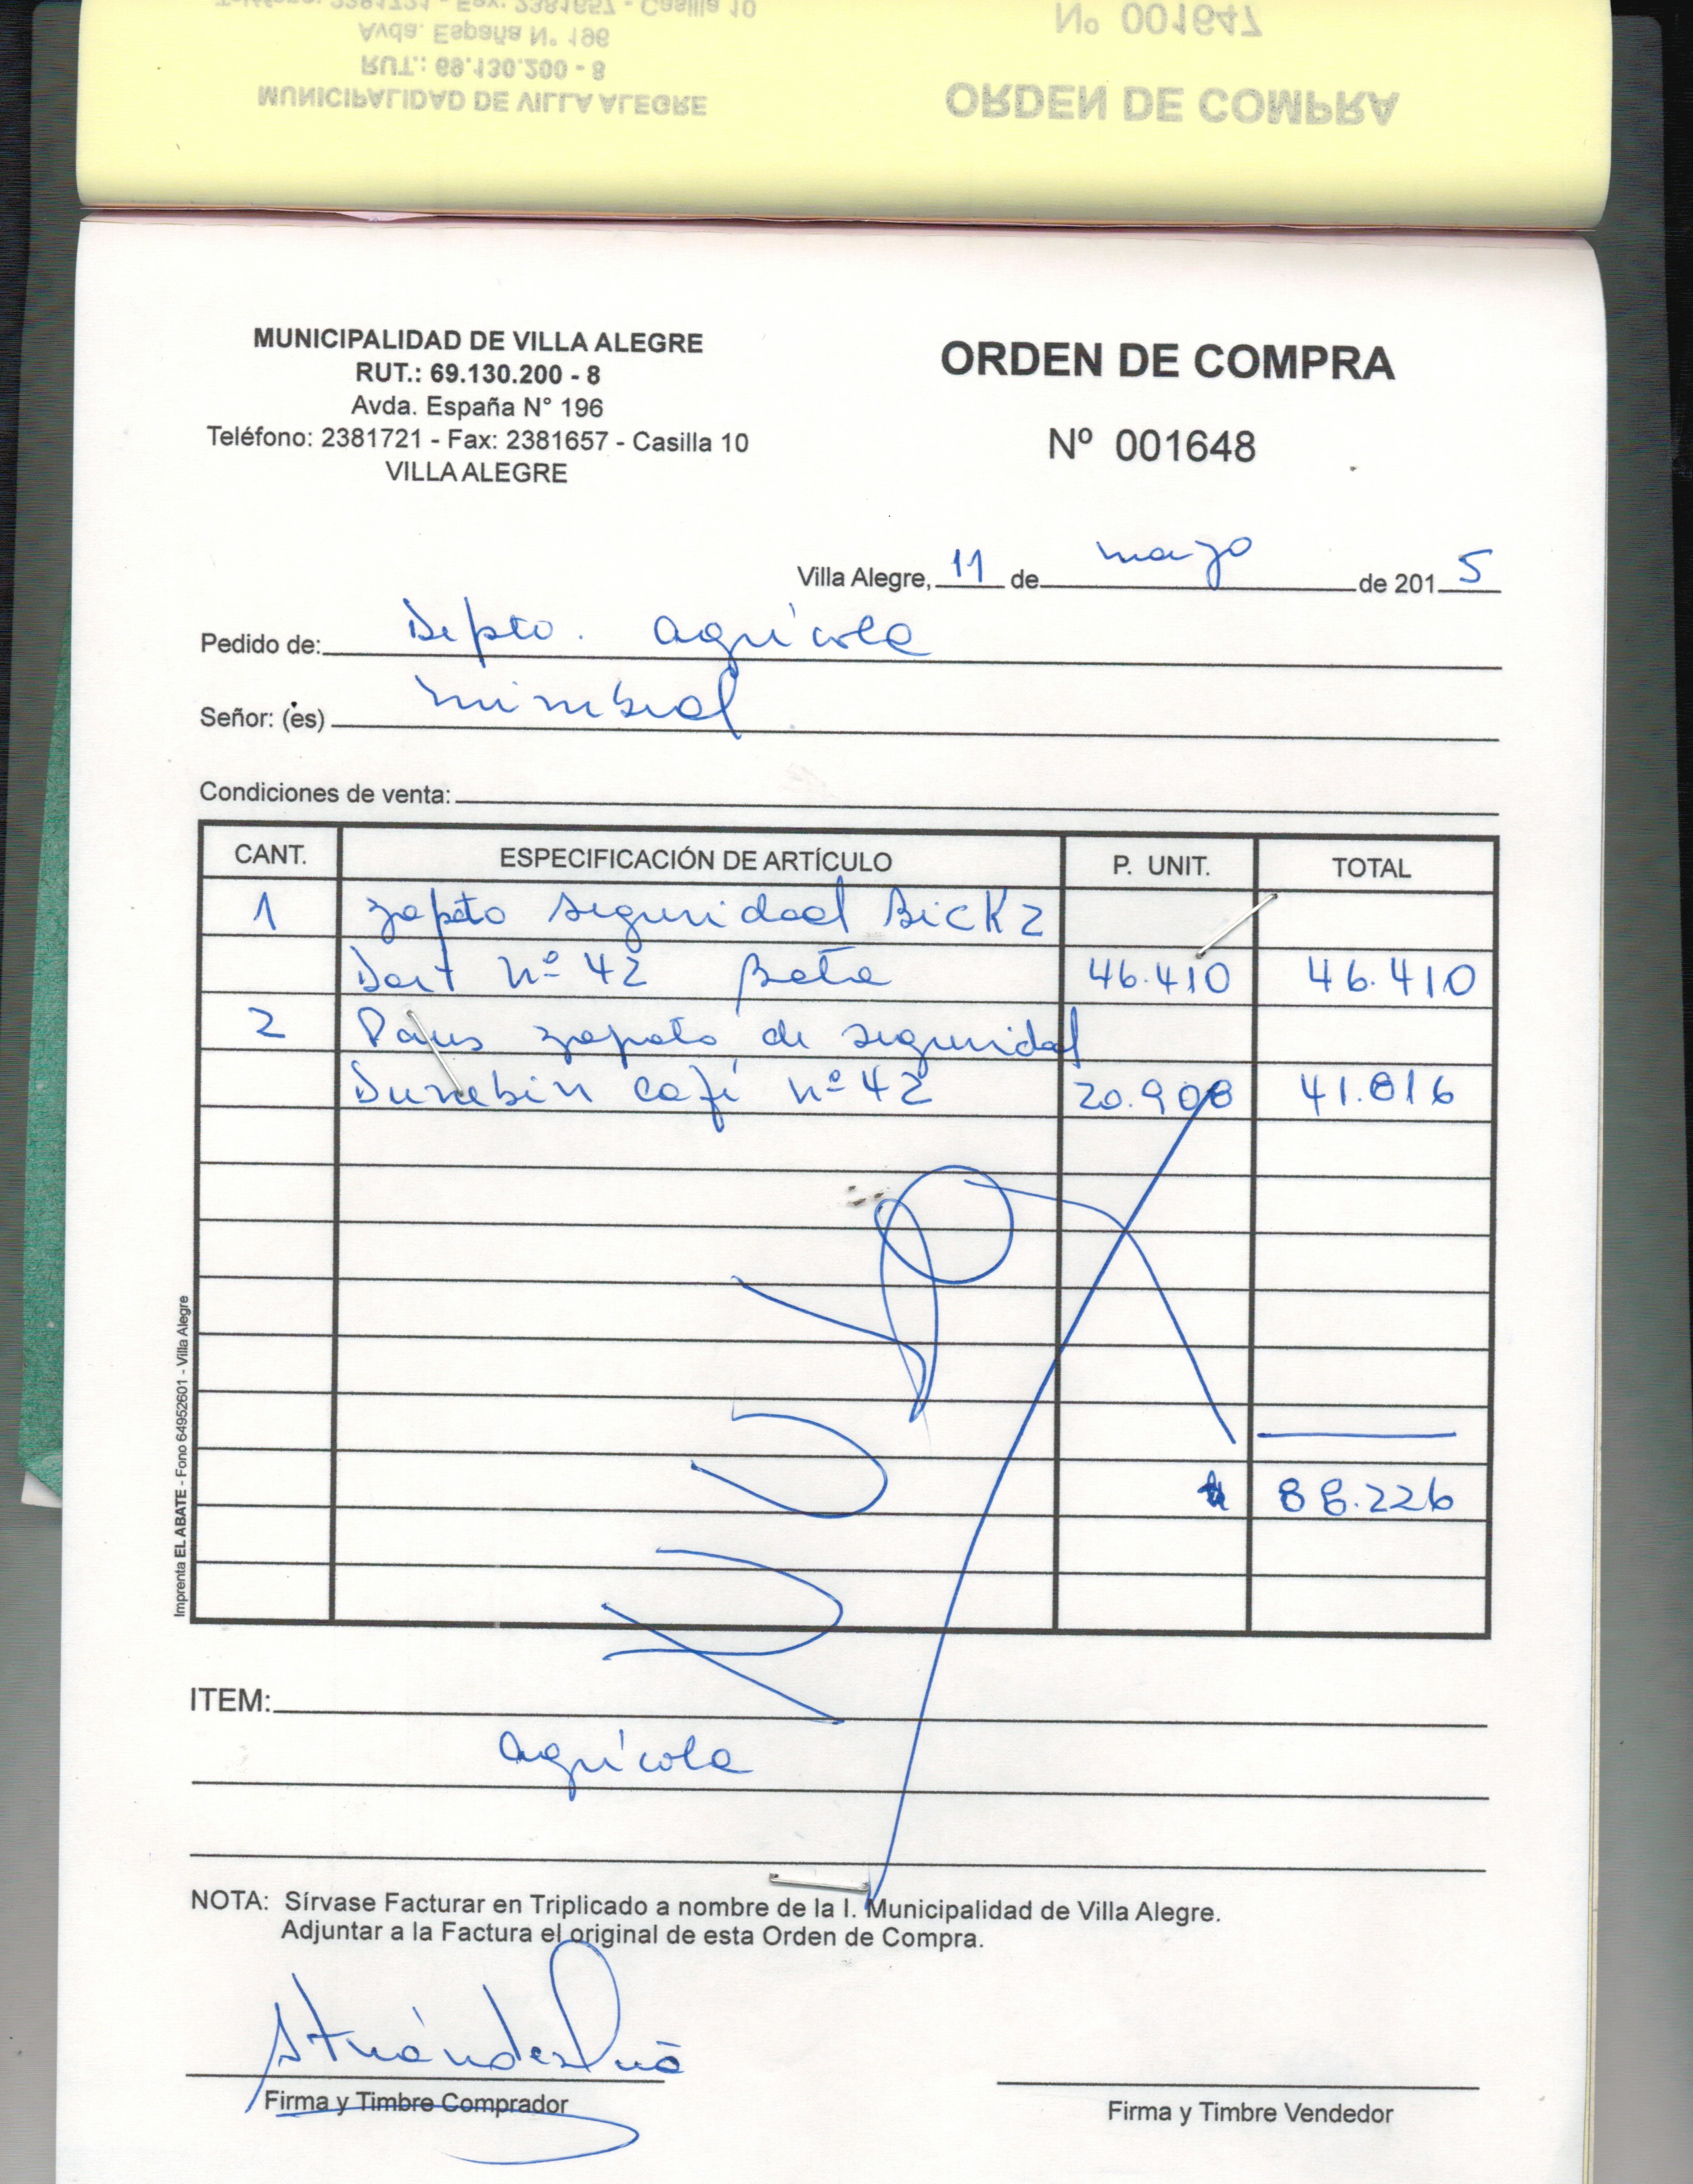 Teléfono: 2381721 - Fax: 2381657 - Casilla 10
Avda. España N° 196
RUT.: 69.130.200 - 8
MUNICIPALIDAD DE VILLA ALEGRE
Nº 001647
ORDEN DE COMPRA
MUNICIPALIDAD DE VILLA ALEGRE
RUT.: 69.130.200 - 8
Avda. España N° 196
Teléfono: 2381721 - Fax: 2381657 - Casilla 10
VILLA ALEGRE
ORDEN DE COMPRA
Nº 001648
Villa Alegre, 11 de marzo de 2015
Pedido de: Depto. agrícola
Señor: (es) mimbral
Condiciones de venta:
CANT. ESPECIFICACIÓN DE ARTÍCULO P. UNIT. TOTAL
1 zapato seguridad Bick 2
Dart nº 42 Bata 46.410 46.410
2 Pares zapato de seguridad
café nº 42 20.908 41.816
88.226
NULA
Imprenta EL ABATE - Fono 64952601 - Villa Alegre
ITEM:
agrícola
NOTA: Sírvase Facturar en Triplicado a nombre de la I. Municipalidad de Villa Alegre.
Adjuntar a la Factura el original de esta Orden de Compra.
Firma y Timbre Comprador
Firma y Timbre Vendedor